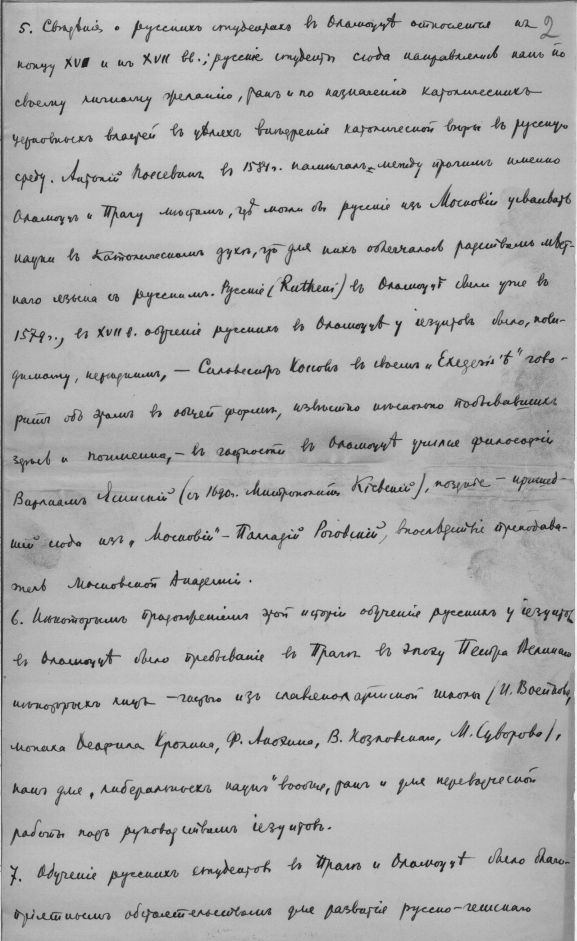 5. Свѣдѣнія о русскихъ студентахъ въ Оломоуцѣ относятся къ 2
концу XVI и къ XVII вв.; русскіе студенты сюда направлялись какъ по
своему личному желанію, такъ и по назначенію католическихъ
церковныхъ властей въ цѣляхъ внѣдренія католической вѣры въ русскую
среду. Антоній Поссевинъ въ 1581г. намѣчалъ между прочимъ именно
Оломоуцъ и Прагу мѣстами, гдѣ могли бы русскіе изъ Московіи усваивать
науки въ католическомъ духѣ, что для нихъ облегчалось родствомъ мѣст-
наго языка съ русскимъ. Русскіе (Rutheni) въ Оломоуцѣ были уже въ
1579г., въ XVII в. обученіе русскихъ въ Оломоуцѣ у іезуитовъ было, пови-
димому, нерѣдкимъ, — Сильвестръ Коссовъ въ своемъ „Exegesis'ѣ" гово-
ритъ объ этомъ въ общей формѣ, извѣстно нѣсколько побывавшихъ
здѣсь и поименно, — въ частности въ Оломоуцѣ учился философіи
Варлаамъ Ясинскій (съ 1690г. Митрополитъ Кіевскій), позднѣе — пришед-
шій сюда изъ „Московіи" — Палладій Роговскій, впослѣдствіе преподава-
тель Московской Академіи.
6. Нѣкоторымъ продолженіемъ этой исторіи обученія русскихъ у іезуитовъ
въ Оломоуцѣ было пребываніе въ Прагѣ въ эпоху Петра Великаго
нѣкоторыхъ лицъ — частью изъ славянолатинской школы (И. Воейкова,
монаха Феофила Кролика, Ф. Анохина, В. Козловскаго, М. Суворова),
какъ для „либеральныхъ наукъ" вообще, такъ и для переводческой
работы подъ руководствомъ іезуитовъ.
7. Обученіе русскихъ студентовъ въ Прагѣ и Оломоуцѣ было благо-
пріятнымъ обстоятельствомъ для развитія русско-чешскаго